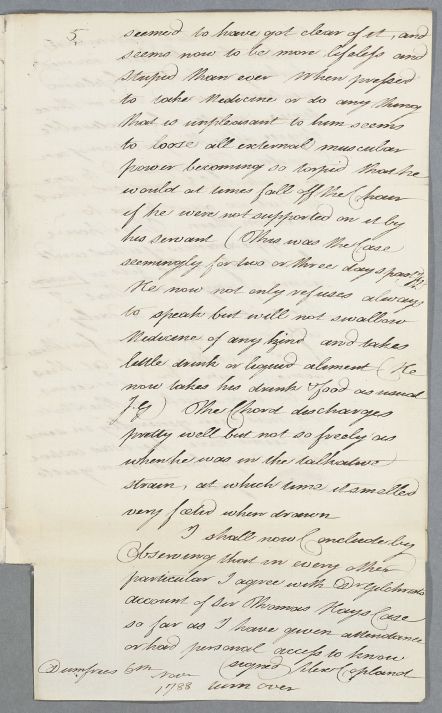 5. seemed to have got clear of it, and
seems now to be more lifeless and
stupid than ever When pressed
to take Medecine or do any thing
that is unpleasant to him seems
to loose all external muscular
power becoming so torpid that he
would at times fall off the Chair
if he were not supported on it by
his servant (This was the Case
seemingly for two or three days past
He now not only refuses always
to speak but will not swallow
Medicine of any kind and takes
little drink or liquid aliment (He
now takes his drink & food as usual
J.G) The Chord discharges
pretty well but not so freely as
when he was in the talkative
strain, at which time it smelled
very foetid when drawn
I shall now Conclude by
Observing that in every other
particular I agree with Dr Gilchrists
account of Sir Thomas Hays Case
so far as I have given attendance
or had personal access to know
signed Alexr Copland
Dumfries 6th Novr 1788
turn over